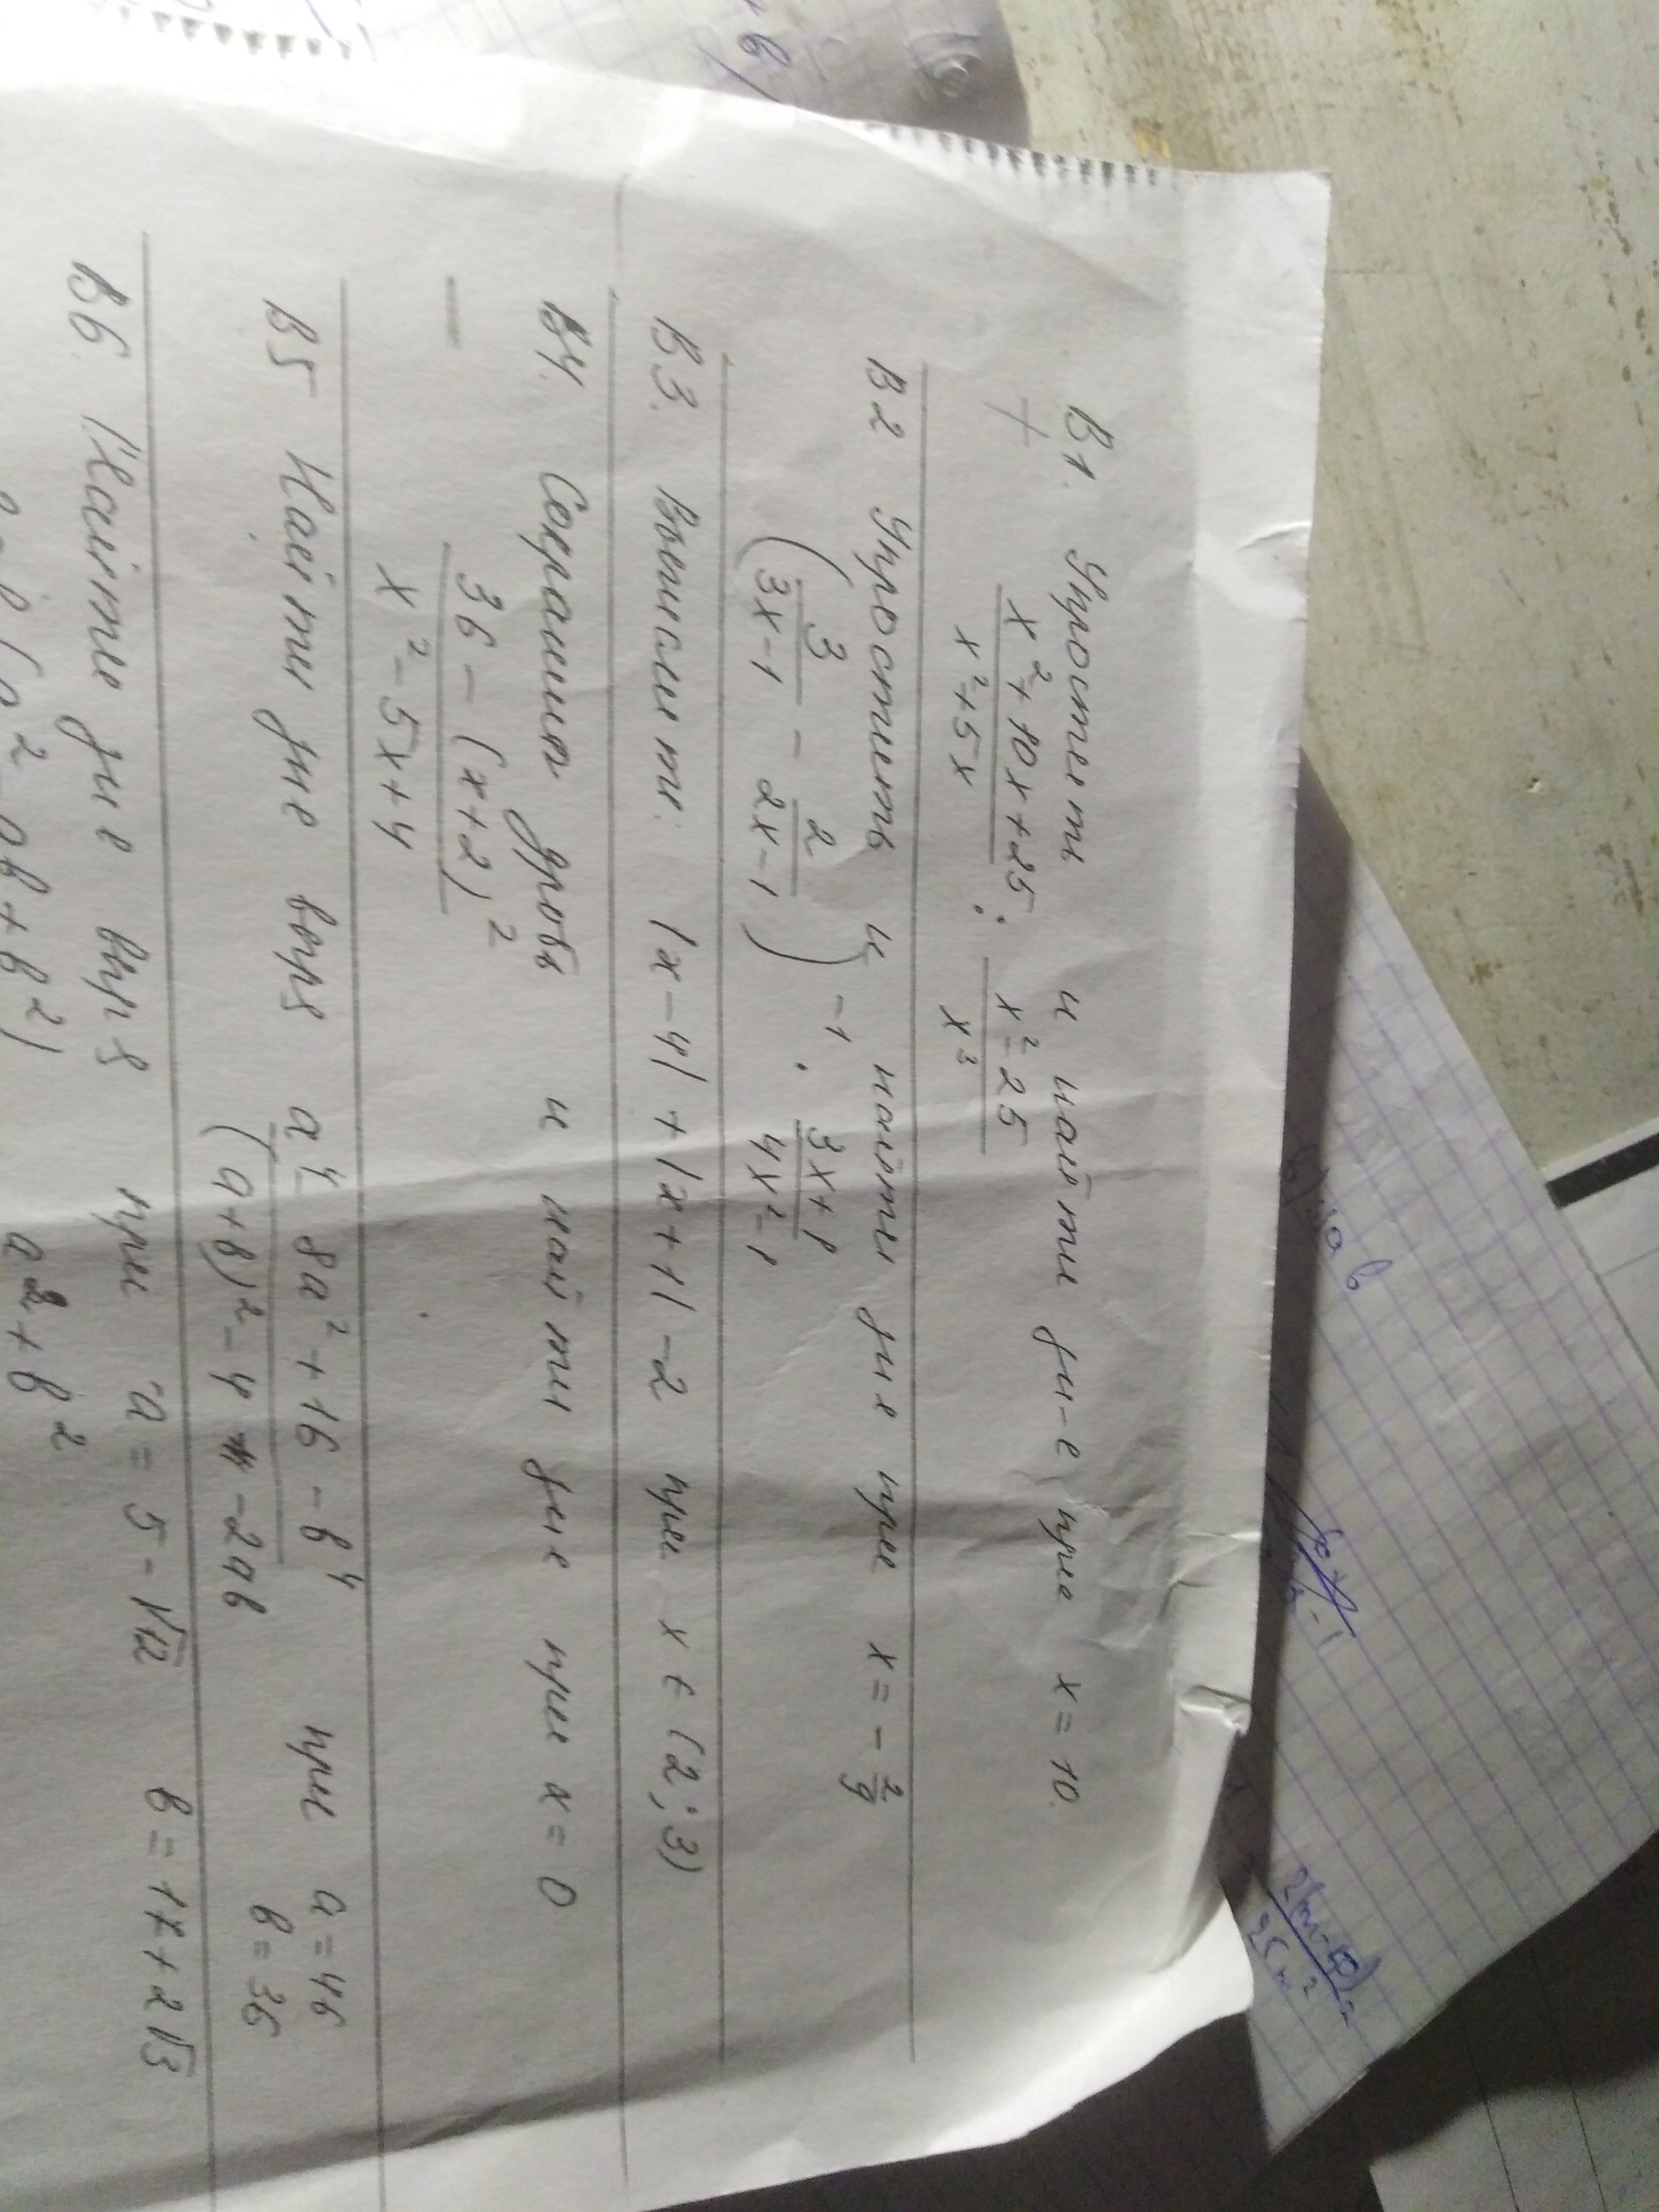 В1. Упростить и найти зн-е при x = 10.
+ (x² + 10x + 25)/(x² + 5x) : (x² - 25)/x³
В2 Упростить и найти зн е при x = - 2/9
(3/(3x-1) - 2/(2x-1))⁻¹ · (3x+1)/(4x²-1)
В3. Вычислить: |x-4| + |x+1| - 2 при x ∈ (2; 3)
В4. Сократить дробь и найти зн е при x = 0
— (36 - (x+2)²)/(x² - 5x + 4)
В5 Найти зн е выр (a⁴ - 8a² + 16 - в⁴)/((a+в)² - 4 - 2aв) при a = 46
в = 36
В6. Найти зн е выр при a = 5 - √12 в = 17 + 2√3
(a² - aв + в²) a² + в²
в)
2(m-50)
25m²